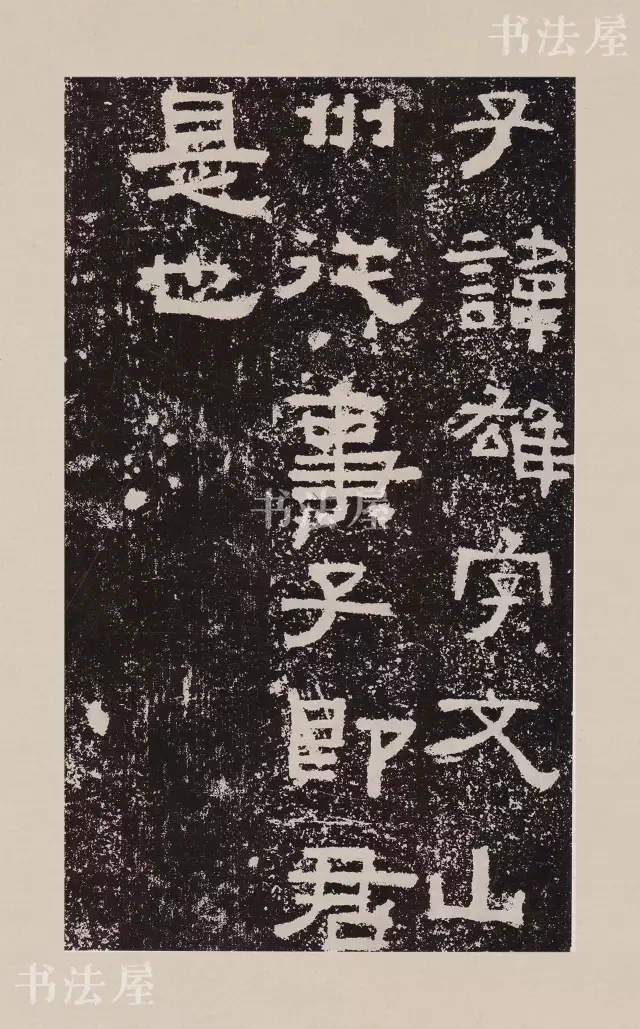 书法屋
子諱雄字文山
州從事子即君
是也
书法屋
书法屋